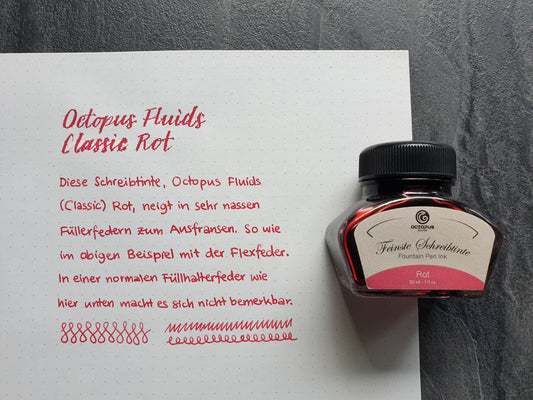 Octopus Fluids
Classic Rot
Diese Schreibtinte, Octopus Fluids
(Classic) Rot, neigt in sehr nassen
Füllerfedern zum Ausfransen. So wie
im obigen Beispiel mit der Flexfeder.
In einer normalen Füllhalterfeder wie
hier unten macht es sich nicht bemerkbar.
OCTOPUS
Feinste Schreibtinte
Fountain Pen Ink
Rot